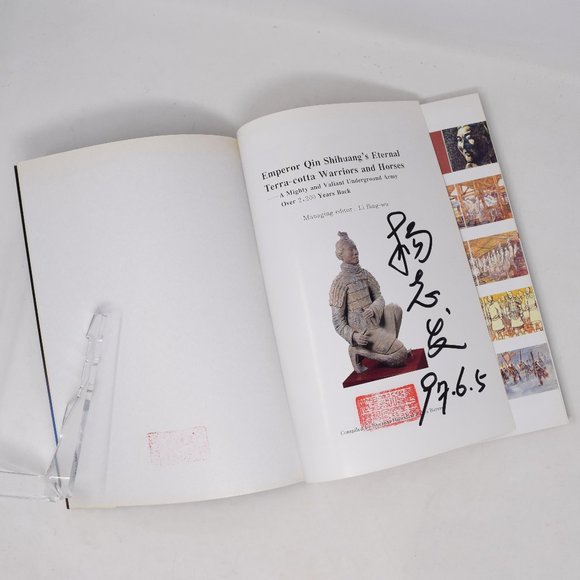 Emperor Qin Shihuang's Eternal
Terra-cotta Warriors and Horses
—A Mighty and Valiant Underground Army
Over 2,200 Years Back
Managing editor: Li
杨
志
发
97.6.5
Compiled by